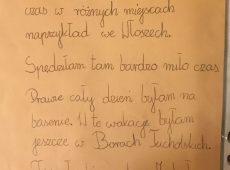 czas w różnych miejscach
naprzykład we Włoszech.
Spędziłam tam bardzo miło czas
Prawie cały dzień byłam na
basenie. W te wakacje byłam
jeszcze w Borach Tucholskich.